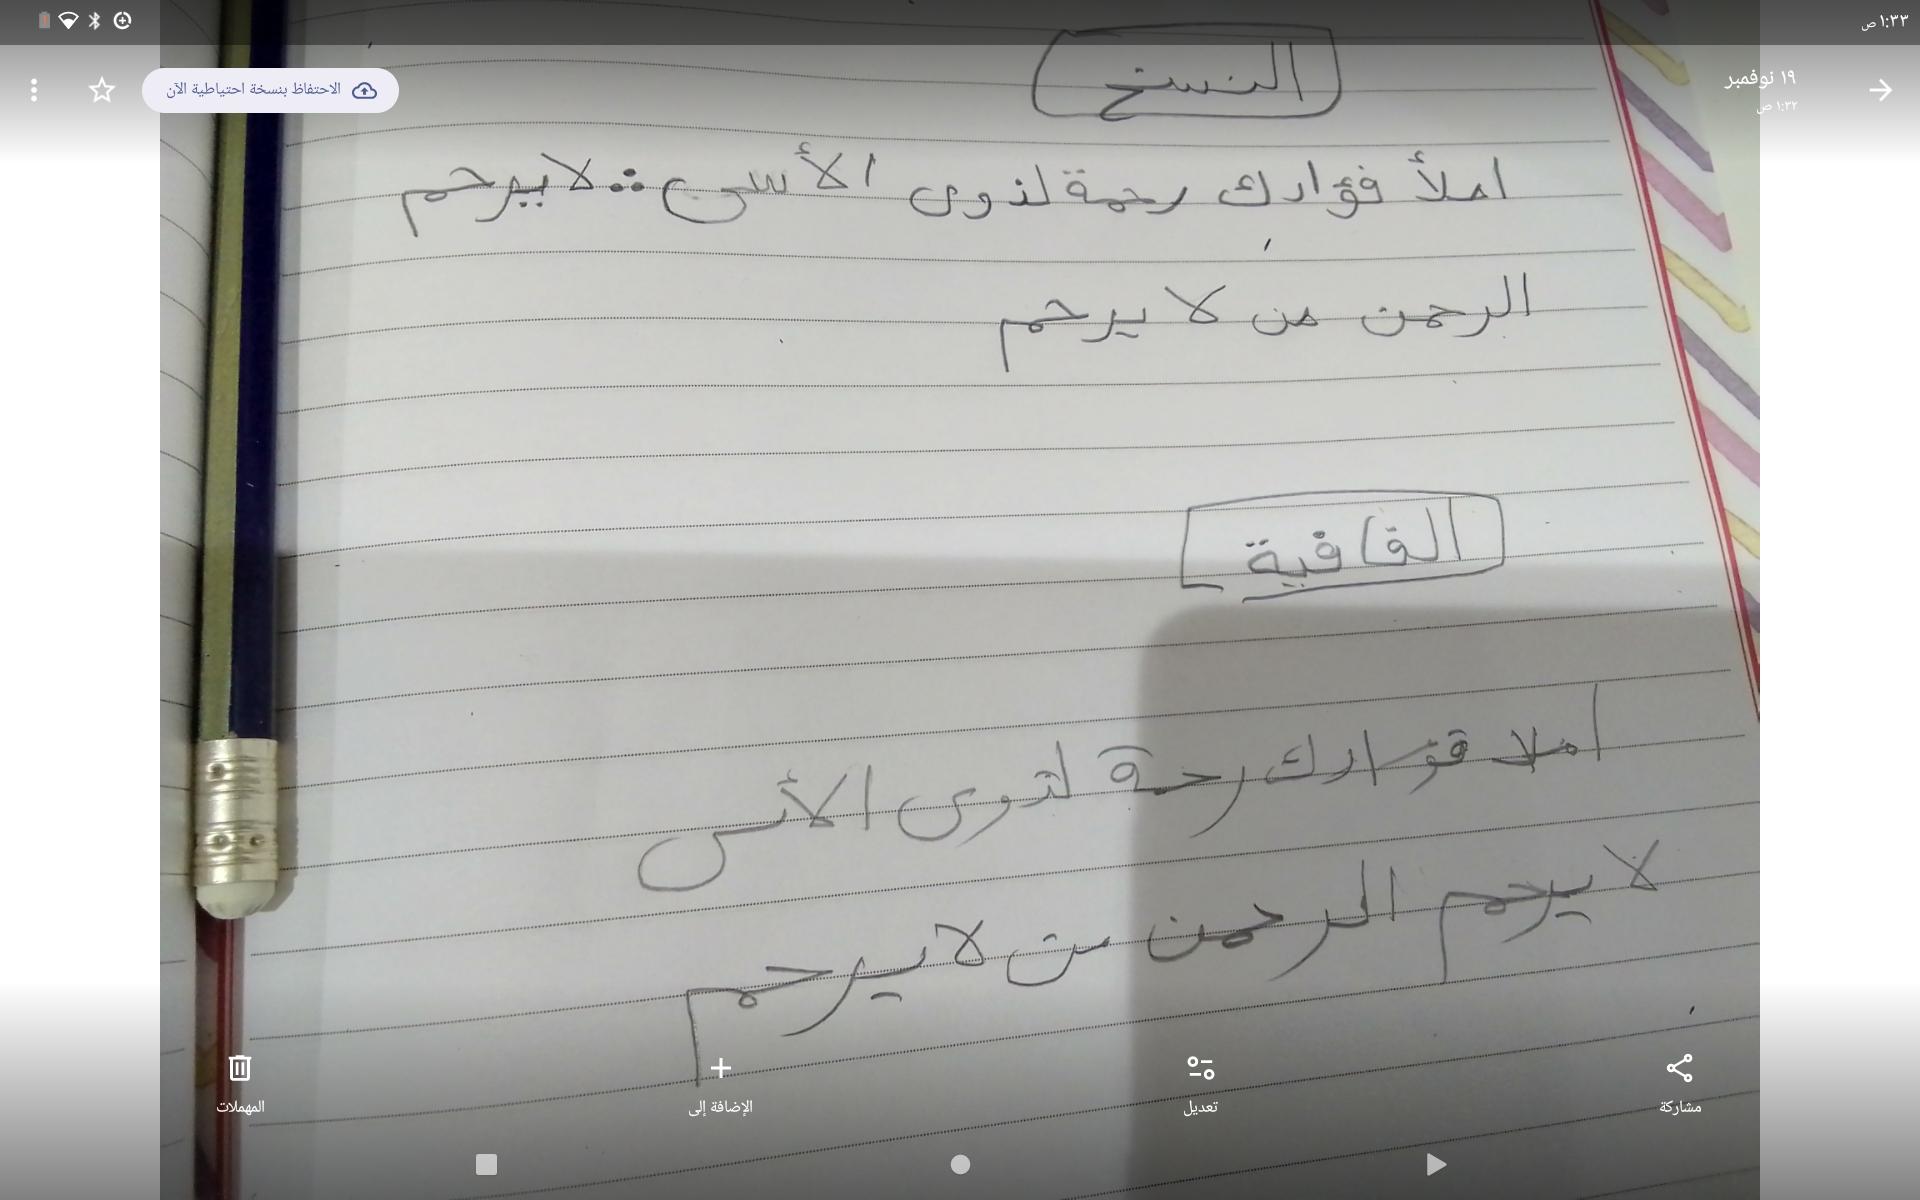 ١:٣٣ ص
١٩ نوفمبر
١:٣٢ ص
الاحتفاظ بنسخة احتياطية الآن
النسخ
املأ فؤادك رحمة لذوى الأسى ∴ لا يرحم
الرحمن من لا يرحم
القافية
املا فؤادك رحة لذوى الأسى
لا يرحم الرحمن من لا يرحم
مشاركة
تعديل
الإضافة إلى
المهملات